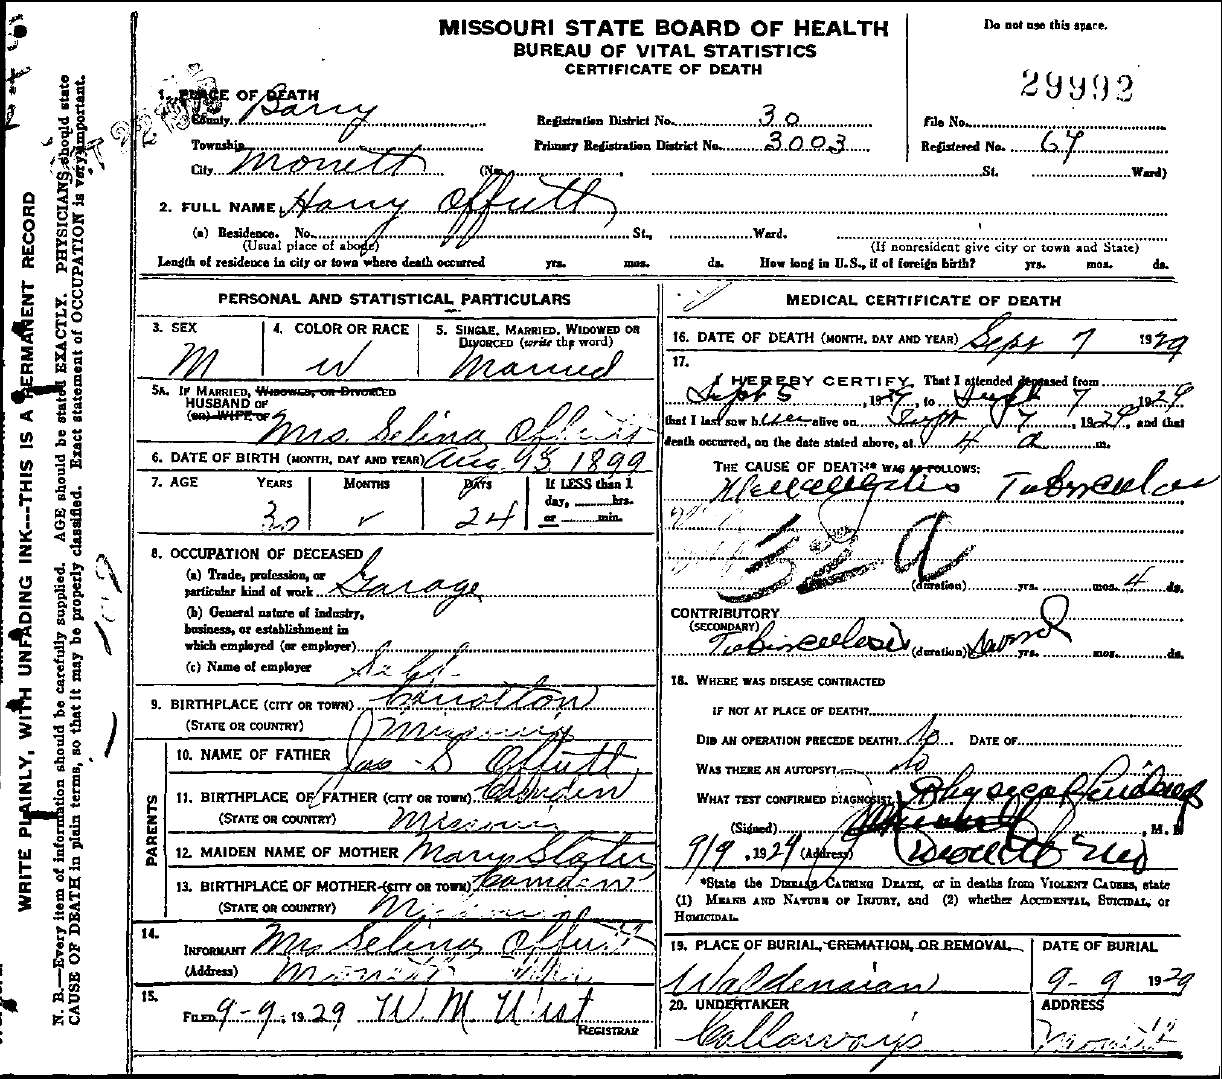 MISSOURI STATE BOARD OF HEALTH
BUREAU OF VITAL STATISTICS
CERTIFICATE OF DEATH
Do not use this space.
29992
1. PLACE OF DEATH
County Barry
Registration District No. 30
File No.
Township
Primary Registration District No. 3003
Registered No. 64
City Monett (No. St. Ward)
2. FULL NAME Harry Offutt
(a) Residence. No. St., Ward.
(Usual place of abode) (If nonresident give city or town and State)
Length of residence in city or town where death occurred yrs. mos. ds. How long in U.S., if of foreign birth? yrs. mos. ds.
PERSONAL AND STATISTICAL PARTICULARS
3. SEX
M
4. COLOR OR RACE
W
5. SINGLE, MARRIED, WIDOWED OR DIVORCED (write the word)
Married
5A. IF MARRIED, WIDOWED, OR DIVORCED
HUSBAND OF
(OR) WIFE OF
Mrs. Selina Offutt
6. DATE OF BIRTH (MONTH, DAY AND YEAR) Aug 1899
7. AGE YEARS MONTHS DAYS If LESS than 1 day, hrs. or min.
30 24
8. OCCUPATION OF DECEASED
(a) Trade, profession, or particular kind of work Garage
(b) General nature of industry, business, or establishment in which employed (or employer)
(c) Name of employer Self
9. BIRTHPLACE (CITY OR TOWN) Carrolton
(STATE OR COUNTRY) Missouri
PARENTS
10. NAME OF FATHER Jas. S Offutt
11. BIRTHPLACE OF FATHER (CITY OR TOWN) Camden
(STATE OR COUNTRY) Missouri
12. MAIDEN NAME OF MOTHER Mary Slater
13. BIRTHPLACE OF MOTHER (CITY OR TOWN) Camden
(STATE OR COUNTRY) Missouri
14.
INFORMANT Mrs Selina Offutt
(Address) Monett Mo
15.
FILED 9-9, 1929 W. M West
REGISTRAR
MEDICAL CERTIFICATE OF DEATH
16. DATE OF DEATH (MONTH, DAY AND YEAR) Sept 7 1929
17.
I HEREBY CERTIFY, That I attended deceased from
Sept 5, 1929, to Sept 7 1929
that I last saw h im alive on Sept 7, 1929, and that
death occurred, on the date stated above, at 4 a m.
THE CAUSE OF DEATH* WAS AS FOLLOWS:
Tubercular
32 a
(duration) yrs. mos. 4 ds.
CONTRIBUTORY
(SECONDARY)
Tuberculosis (duration) yrs. mos. ds.
18. WHERE WAS DISEASE CONTRACTED
IF NOT AT PLACE OF DEATH?
DID AN OPERATION PRECEDE DEATH? No DATE OF
WAS THERE AN AUTOPSY? No
WHAT TEST CONFIRMED DIAGNOSIS? Physical findings
(Signed) , M. D
9/9, 1929 (Address) Monett Mo
*State the DISEASE CAUSING DEATH, or in deaths from VIOLENT CAUSES, state
(1) MEANS AND NATURE OF INJURY, and (2) whether ACCIDENTAL, SUICIDAL, or
HOMICIDAL.
19. PLACE OF BURIAL, CREMATION, OR REMOVAL
DATE OF BURIAL
Waldensian
9-9 1929
20. UNDERTAKER
ADDRESS
Callaway's
Monett
WRITE PLAINLY, WITH UNFADING INK---THIS IS A PERMANENT RECORD
N. B.—Every item of information should be carefully supplied. AGE should be stated EXACTLY. PHYSICIANS should state
CAUSE OF DEATH in plain terms, so that it may be properly classified. Exact statement of OCCUPATION is very important.